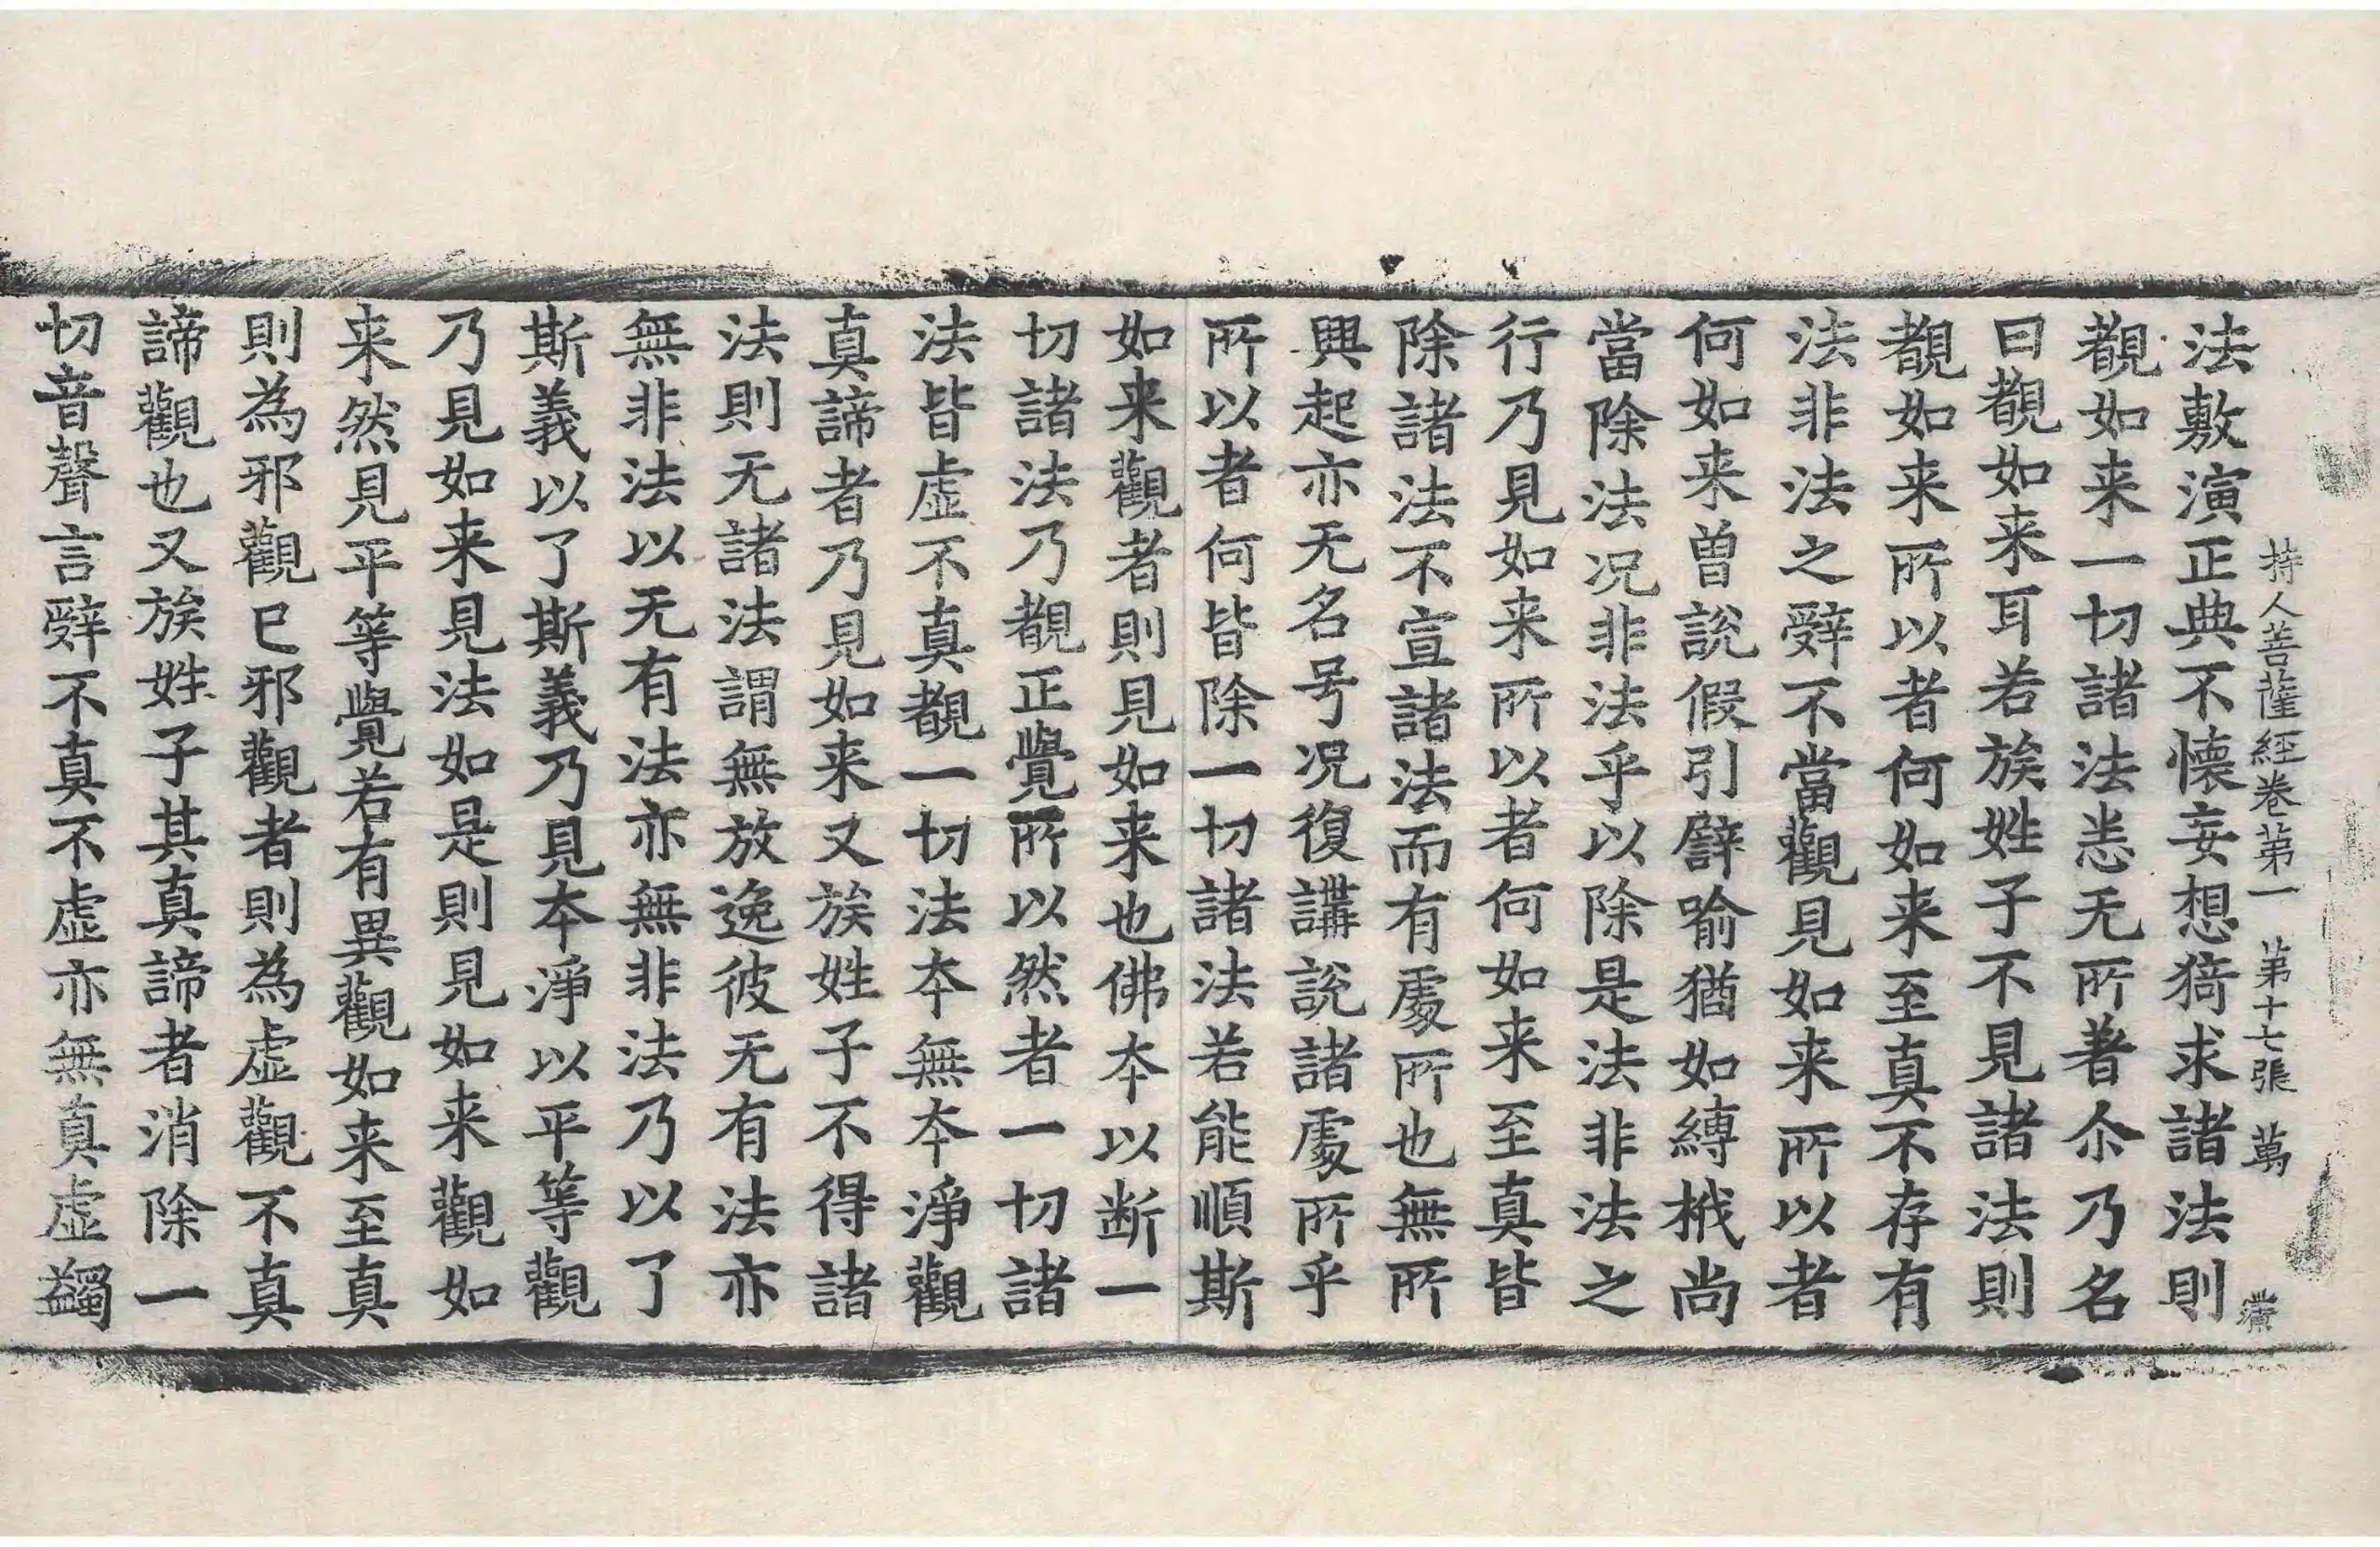 持人菩薩經卷第一 第十七張 萬
法敷演正典不懐妄想猗求諸法則
覩如来一切諸法恙无所著尒乃名
曰覩如来耳若族姓子不見諸法則
覩如来所以者何如来至真不存有
法非法之辤不當觀見如来所以者
何如来曽說假引譬喻猶如縛栰尚
當除法况非法乎以除是法非法之
行乃見如来所以者何如来至真皆
除諸法不宣諸法而有處所也無所
興起亦无名号况復講說諸處所乎
所以者何皆除一切諸法若能順斯
如来觀者則見如来也佛夲以断一
切諸法乃覩正覺所以然者一切諸
法皆虚不真覩一切法夲無夲淨觀
真諦者乃見如来又族姓子不得諸
法則无諸法謂無放逸彼无有法亦
無非法以无有法亦無非法乃以了
斯義以了斯義乃見夲淨以平等觀
乃見如来見法如是則見如来觀如
来然見平等覺若有異觀如来至真
則為邪觀巳邪觀者則為虚觀不真
諦觀也又族姓子其真諦者消除一
切音聲言辤不真不虚亦無真虚蠲